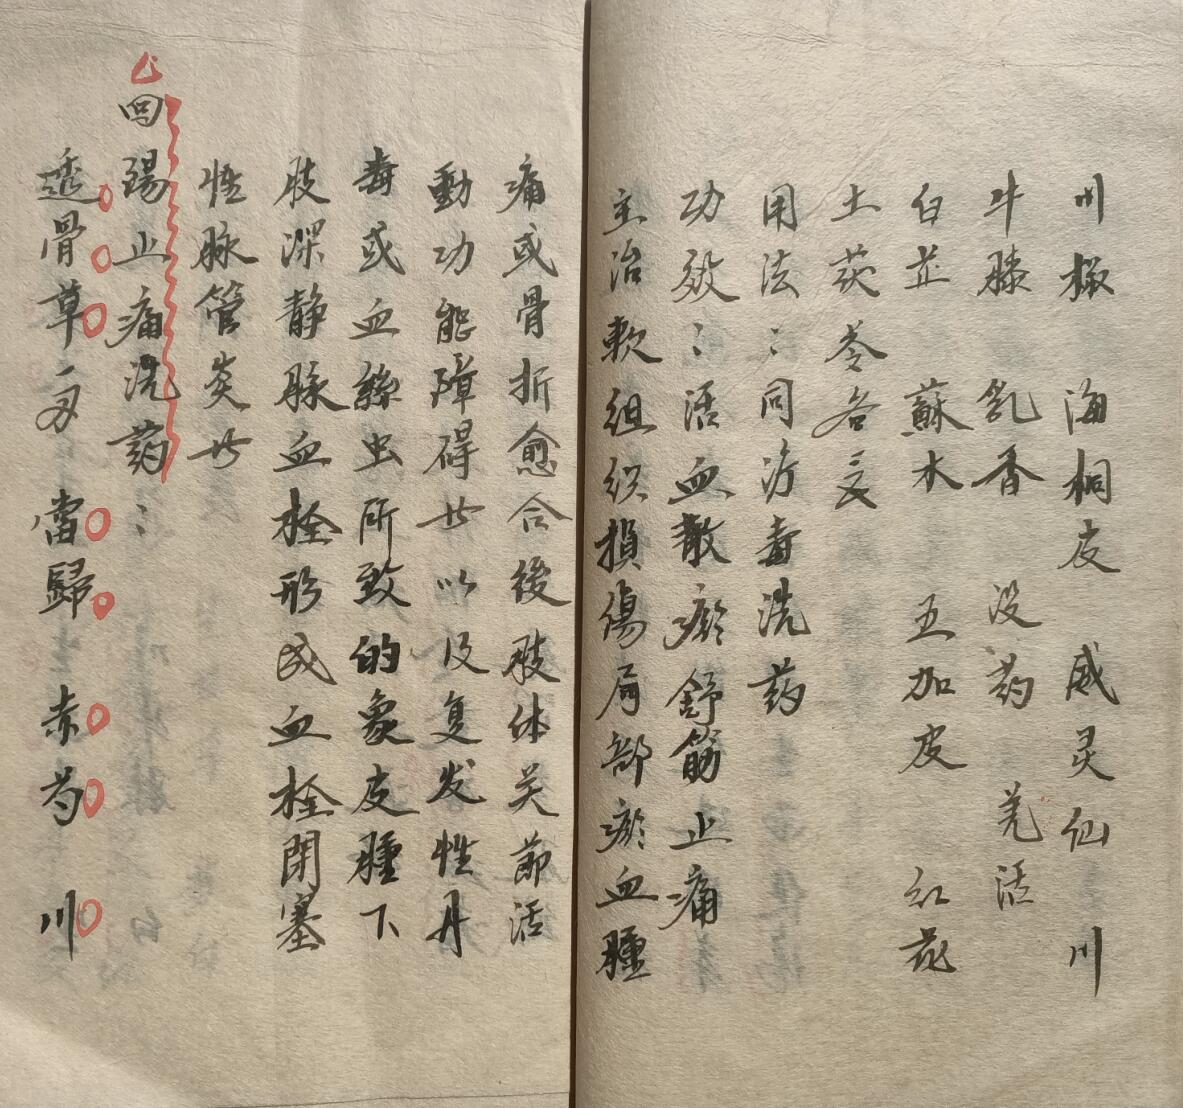 川椒 海桐皮 威灵仙 川
牛膝 乳香 没药 羌活
白芷 蘇木 五加皮 红花
土茯苓各三
用法：同消毒洗药
功效：活血散瘀舒筋止痛
主治軟组织損傷局部瘀血腫
痛或骨折愈合後肢体关節活
動功能障碍廿以及复发性丹
毒或血絲虫所致的象皮腫下
肢深静脉血栓形成血栓閉塞
性脉管炎廿
回陽止痛洗药：
透骨草一 當歸 赤芍 川